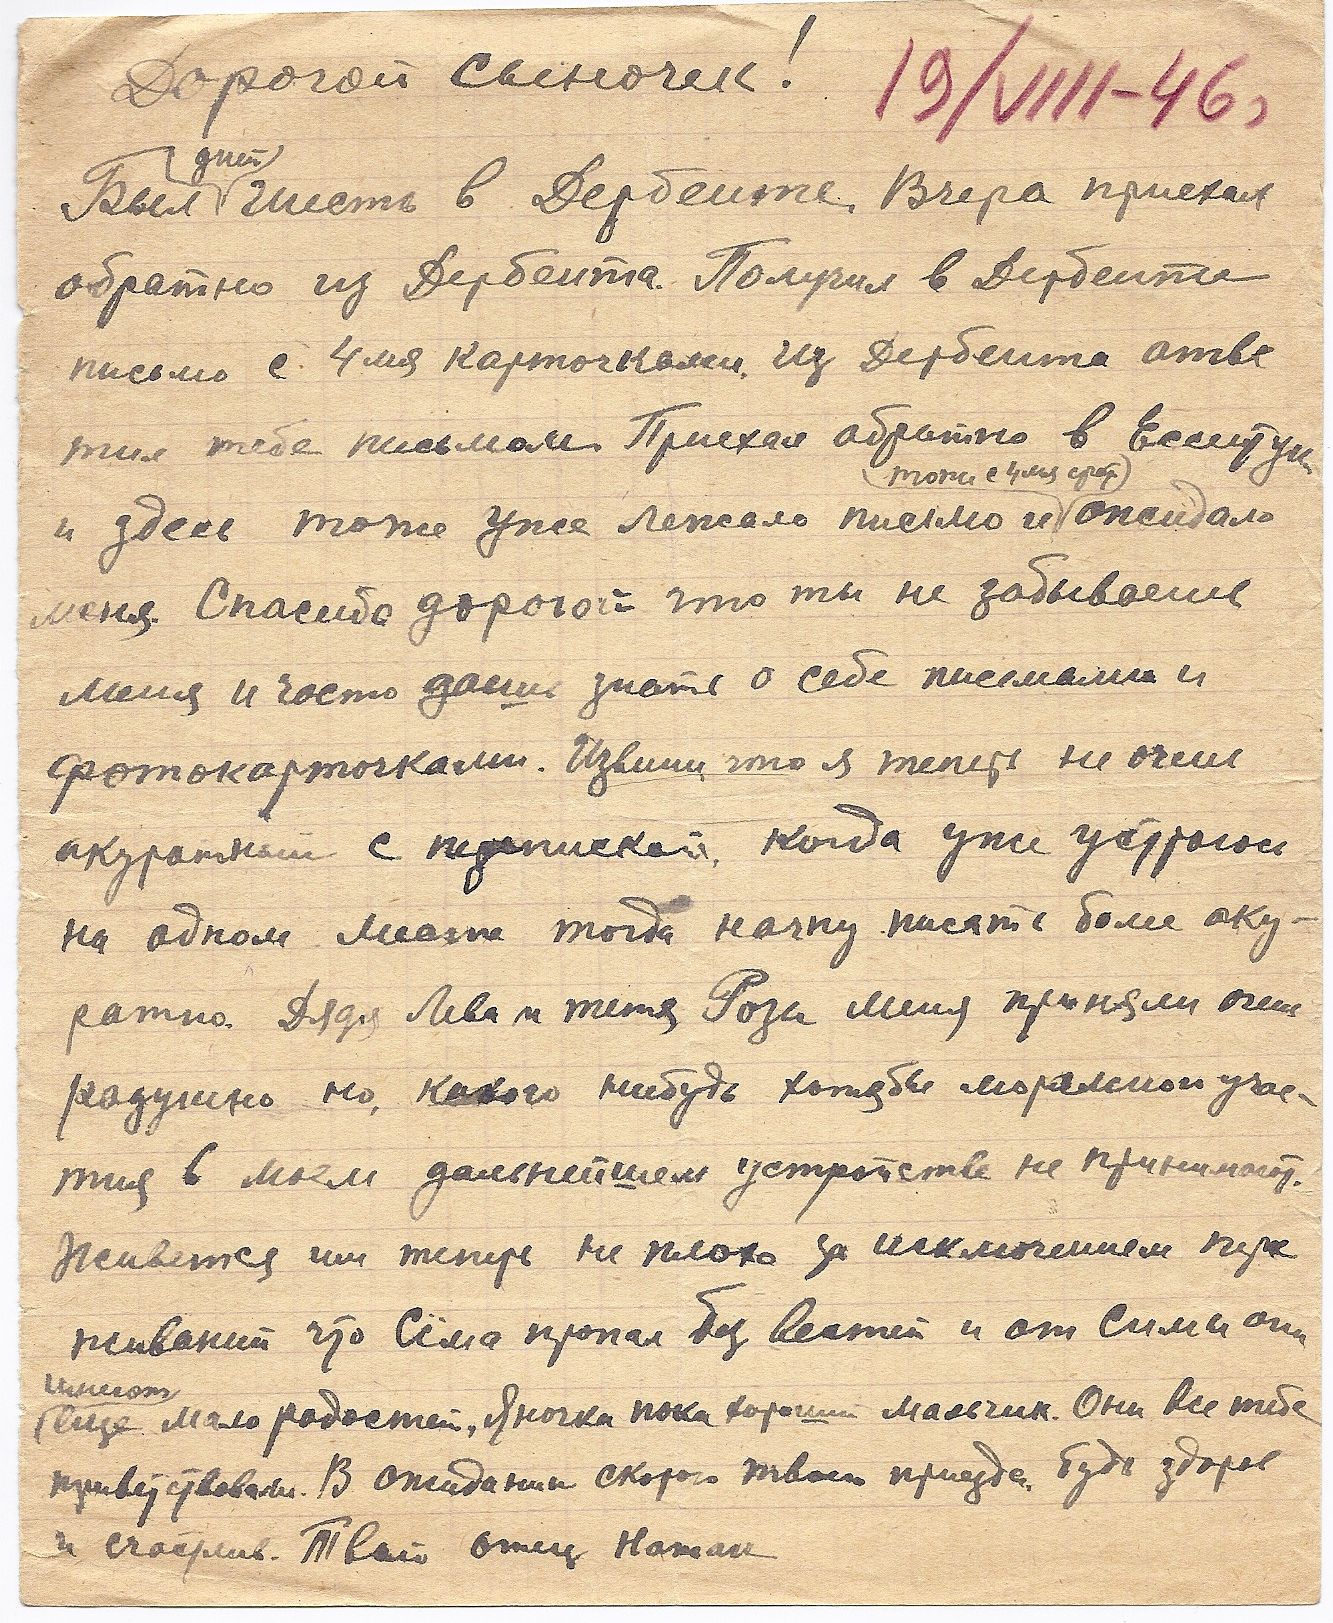 Дорогой сыночек! 19/VIII-46г
дней
Был шесть в Дербенте. Вчера приехал
обратно из Дербента. Получил в Дербенте
письмо с 4мя карточками. Из Дербента отве
тил тебе письмом. Приехал обратно в Ессентуки
(тоже с 4мя
и здесь тоже уже лежало письмо и ожидало
меня. Спасибо дорогой что ты не забываешь
меня и часто даешь знать о себе письмами и
фотокарточками. Извини что я теперь не очень
акуратный с перепиской, когда уже устроюсь
на одном месте тогда начну писать более аку-
ратно. Дядя Лева и тетя Роза меня приняли очень
радушно но, какого нибудь хотябы моральной учас-
тия в моем дальнейшем устройстве не принимают.
Живется им теперь не плохо за исключением пере
живаний что Сёма пропал без вестей и от Симы они
имеют
еще мало радостей, Яночка пока хороший мальчик. Они все тебе
приветствовали. В ожидании скорого твоего приезда. Будь здоров
и счастлив. Твой отец Натан